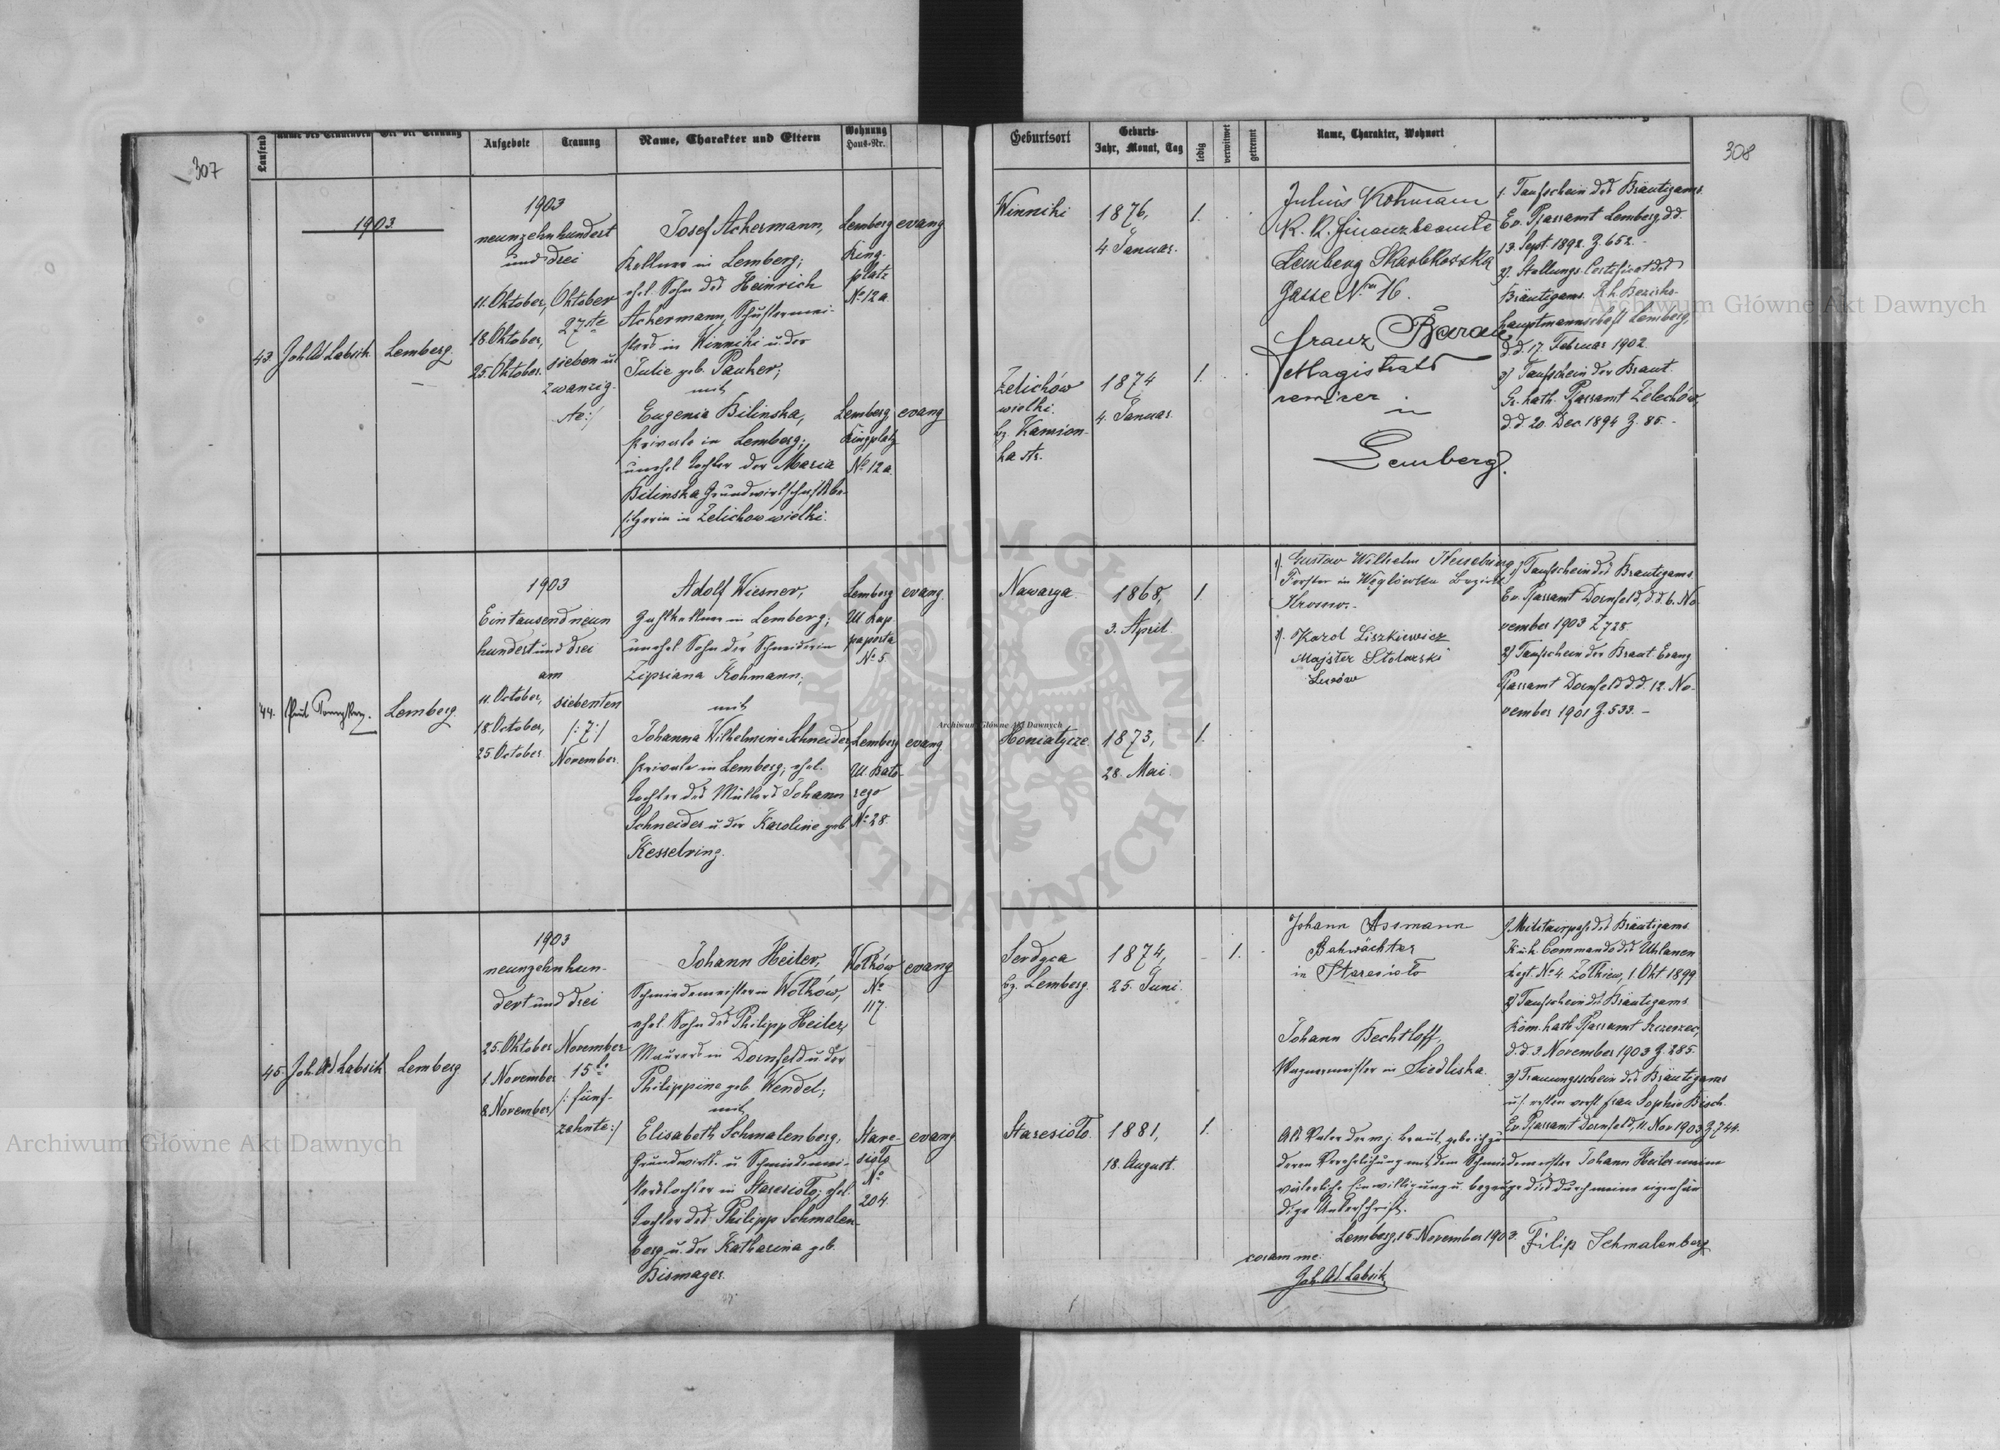 307
Laufend
Name des Trauenden
Ort der Trauung
Aufgebote
Trauung
Name, Charakter und Eltern
Wohnung
Haus-Nr.
1903.
43.
Joh. Ad. Labsik
Lemberg.
1903
neunzehnhundert
und drei
11. Oktober,
18. Oktober,
25. Oktober.
Oktober
27ste
sieben u
zwanzig-
ste:/
Josef Achermann,
Kellner in Lemberg;
ehel. Sohn des Heinrich
Achermann, Schustermei-
sters in Winniki u. der
Julie geb. Pauker;
mit
Eugenia Bilinska,
Private in Lemberg;
unehel. Tochter der Maria
Bilinska Grundwirtschaftsbe-
sitzerin in Zelichow wielki.
Lemberg
Ring-
platz
No 12a.
evang
Lemberg
Ringplatz
No 12a.
evang
44.
Lemberg.
1903
Eintausendneun
hundert und drei
am
11. October,
18. October,
25. October
siebenten
/:7:/
November.
Adolf Wiesner,
Zahlkellner in Lemberg;
unehel. Sohn der Schneiderin
Zipriana Kohmann;
mit
Johanna Wilhelmine Schneider,
Private in Lemberg; ehel.
Tochter des Müllers Johann
Schneider u. der Karoline geb
Kesselring.
Lemberg
Ul. Kap
No 5
evang.
Lemberg
Ul. Bato-
rego
No 28.
evang.
45.
Joh. Ad. Labsik
Lemberg
1903
neunzehnhun-
dert und drei
25. Oktober
1. November
8. November
November
15te
/:fünf-
zehnte:/
Johann Heiler,
Schmiedemeister in Wolków,
ehel. Sohn des Philipp Heiler,
Maurers in Dornfeld u. der
Philippine geb. Wendel;
mit
Elisabeth Schmalenberg,
Grundwirts- u. Schmiedemei-
sterstochter in Staresioło; ehel.
Tochter des Philipp Schmalen-
berg u. der Katharina geb.
Bismager.
Wolków
No
117.
evang
Stare-
sioło
No
204.
evang
308
Geburtsort
Geburts-
Jahr, Monat, Tag
ledig
verwitwet
getrennt
Name, Charakter, Wohnort
Winniki
1876,
4. Januar.
1.
Zelichów
wielki.
bz. Kamion-
ka str.
1874
4. Januar.
1.
Julius Kohmann
K. K. Finanzbeamte
Lemberg Skarbkowska
Gasse Nro 16.
Franz
Magistrats
in
Lemberg.
1. Taufschein des Bräutigams.
Ev. Pfarramt Lemberg d.d.
13. Sept. 1892. Z. 652.
2). Stellungs-Certificat des
Bräutigams. K. k. Bezirks-
hauptmannschaft Lemberg,
d.d. 17. Februar 1902.
3) Taufschein der Braut.
Gr. kath. Pfarramt Zelechów,
d.d. 20. Dec 1894 Z. 85.
Nawarya
1868,
3. April.
1.
Honiatycze
1873,
28. Mai.
1.
1). Gustav Wilhelm
Förster in Węglówka Bezirk
Krosno.
2). Karol Liszkiewicz
Majster Stolarski
Lwów
1) Taufschein des Bräutigams.
Ev. Pfarramt Dornfeld, d.d. 6. No-
vember 1903 Z 728
2) Taufschein der Braut Evang
Pfarramt Dornfeld d.d. 12. No-
vember 1901 Z. 533.
Serdyca
bz. Lemberg.
1874,
25. Juni.
1.
Staresioło.
1881,
18. August.
1.
Johann Assmann
Bahwächter
in Staresioło
Johann Bechtloff,
Wagnermeister in Siedliska.
1. Militairpass des Bräutigams
K. u. k. Commando des Uhlanen
Regt. No 4. Zolkiew, 1. Okt 1899
2) Taufschein des Bräutigams
Röm. kath. Pfarramt Szczerzec,
d.d. 3. November 1903 Z. 285.
3) Trauungsschein des Bräutigams
Ev. Pfarramt Dornfeld, 11. Nov 1903 Z. 744.
Als Vater der mj. Braut, gebe ich zu
deren Verehelichung mit dem Schmiedemeister Johann Heiler meine
väterliche Einwilligung u. bezeuge dies durch meine eigenhän-
dige Unterschrift.
Lemberg, 15. November 1903. Filip Schmalenberg
coram me:
Joh. Ad. Labsik
Archiwum Główne Akt Dawnych
Archiwum Główne Akt Dawnych
Archiwum Główne Akt Dawnych
ARCHIWUM GŁÓWNE AKT DAWNYCH